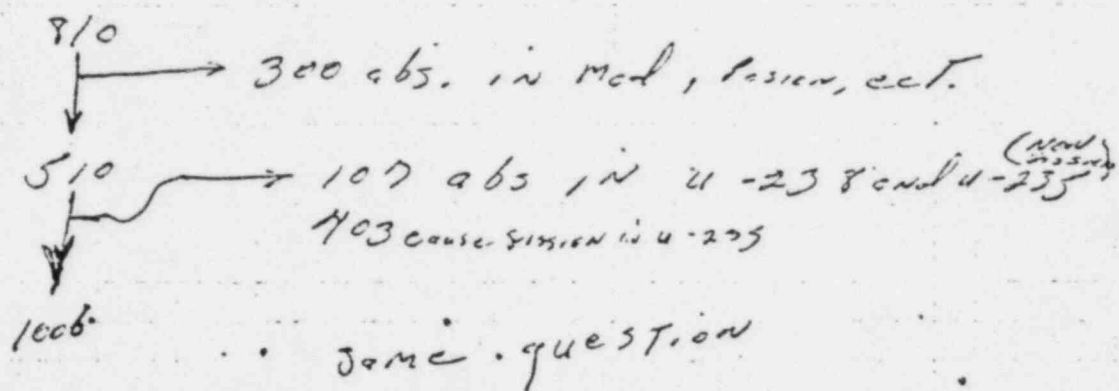 810
300 abs. in Mod, Poison, ect.
510
107 abs in U-238 and U-235 (Non fission)
403 cause fission in U-235
1006
same question